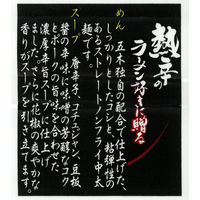 熱辛の
ラーメン好きに贈る
めん
五木独自の配合で仕上げた、
しっかりとしたコシと、粘弾性の
あるストレートノンフライ中太
麺です。
スープ
唐辛子、コチュジャン、豆板
醤の辛味に味噌の芳醇なコク
とポークの旨味を合わせた
濃厚辛旨スープに仕上げ
ました。さらに花椒の爽やかな
香りがスープを引き立てます。